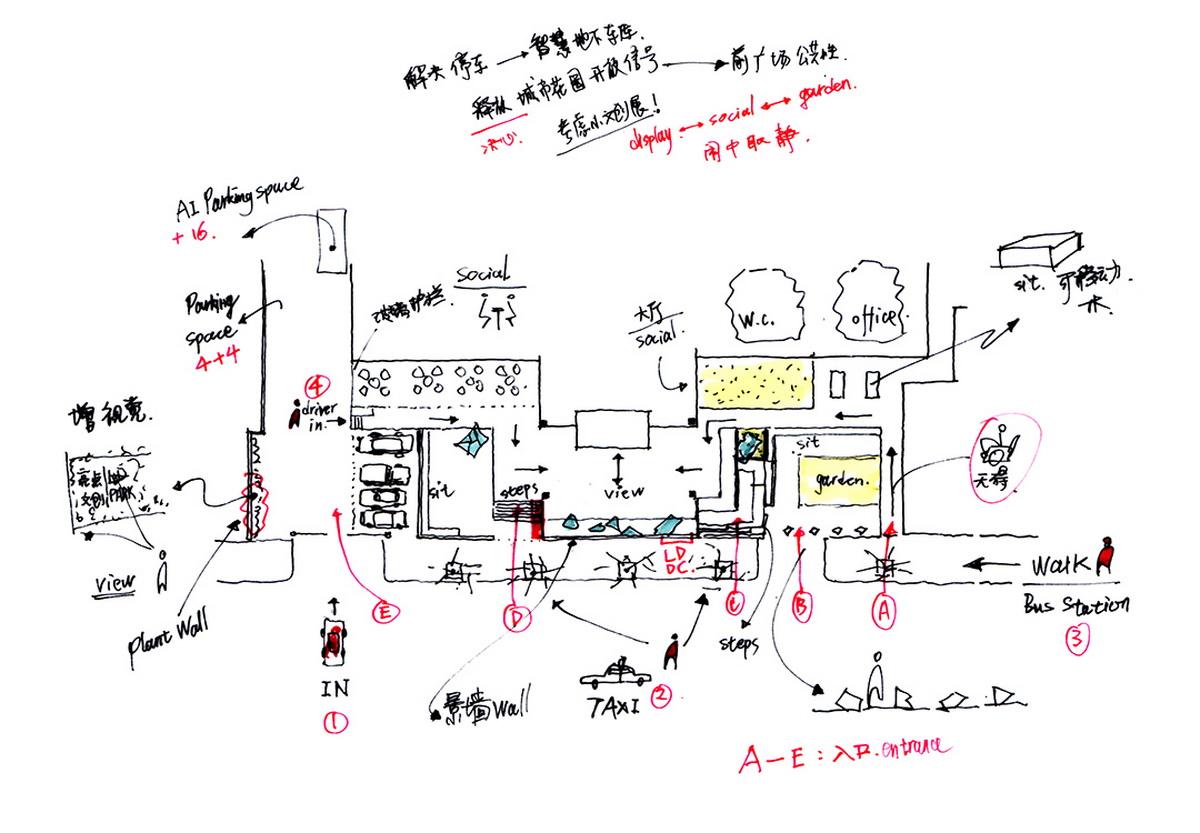 解决停车 → 智慧地下车库.
释放 城市花园 开放信号 → 前广场公共性.
决心
考虑小文创展!
display ↔ social ↔ garden.
闹中取静.
AI Parking space
+ 16.
Parking
space
4+4
social
大厅
social
W.C.
office
sit. 可移动
增视觉.
④
driver
in
sit
steps
view
sit
garden.
LD
DC.
PARK
view
plant Wall
E
D
B
A
WALK
Bus Station
③
steps
IN
①
景墙Wall
TAXI
②
A-E: 入口.entrance